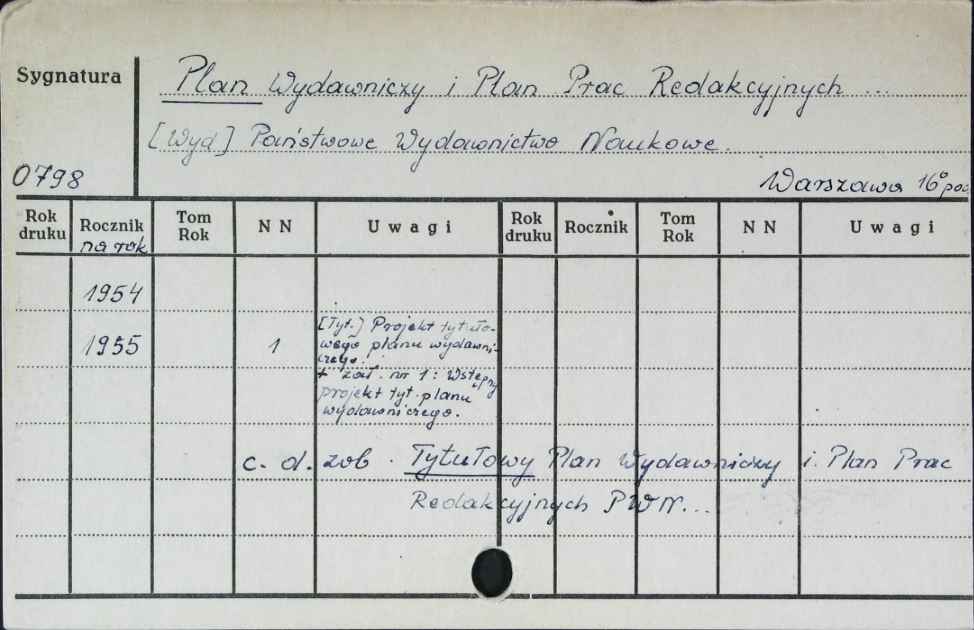 Sygnatura
Plan Wydawniczy i Plan Prac Redakcyjnych ...
[Wyd] Państwowe Wydawnictwo Naukowe.
0798
Warszawa 16° pod
Rok druku Rocznik na rok Tom Rok N N Uwagi Rok druku Rocznik Tom Rok N N Uwagi
1954
1955 1 [Tyt.] Projekt tytuło-
wego planu wydawni-
czego.
+ zał. nr 1: Wstępny
projekt tyt. planu
wydawniczego.
c. d. zob. Tytułowy Plan Wydawniczy i Plan Prac
Redakcyjnych PWN...